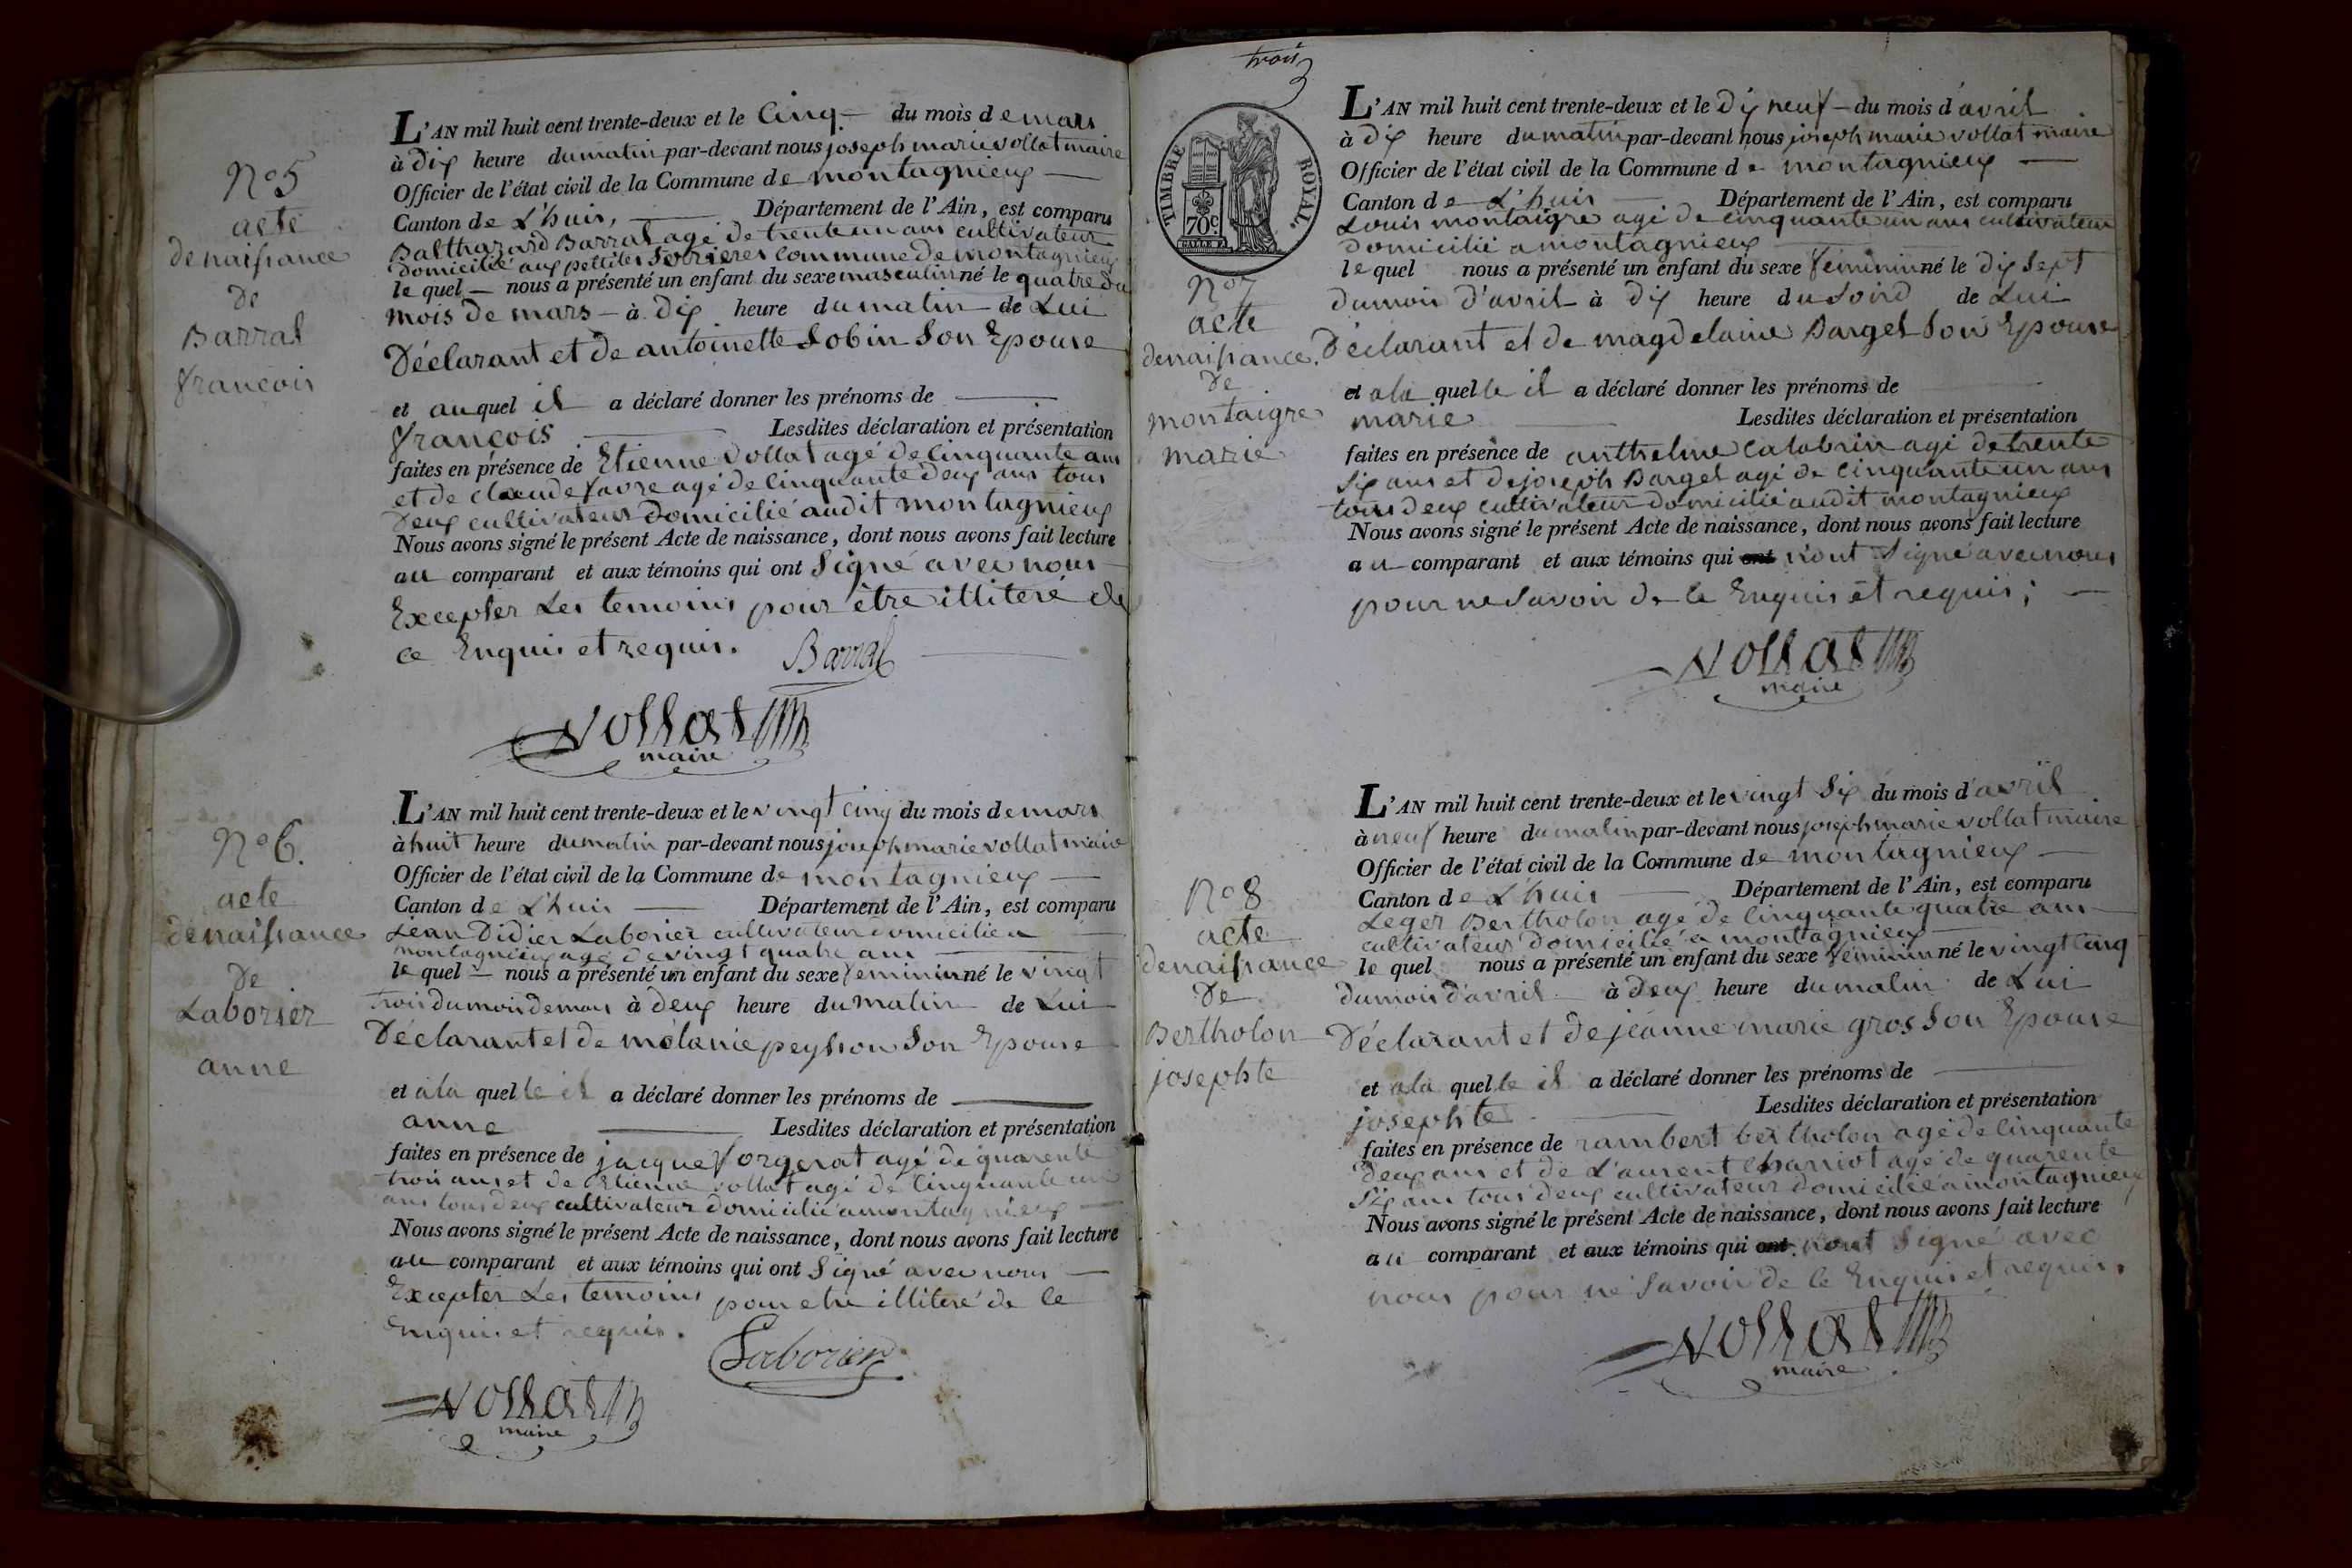 N° 5
acte
de naissance
de
Barral
françois
L'AN mil huit cent trente-deux et le Cinq du mois de mars
à dix heure du matin par-devant nous joseph marie vollat maire
Officier de l'état civil de la Commune de montagnieux
Canton de L'huis, Département de l'Ain, est comparu
Balthazard Barral agé de trente un ans cultivateur
domicilié aux pettites Serrieres Commune de montagnieux
le quel nous a présenté un enfant du sexe masculin né le quatre du
mois de mars à dix heure du matin de Lui
Déclarant et de antoinette Sobin Son Epouse
et au quel il a déclaré donner les prénoms de
françois Lesdites déclaration et présentation
faites en présence de Etienne vollat agé de Cinquante ans
et de claude favre agé de Cinquante deux ans tous
deux cultivateur Domicilié audit montagnieux
Nous avons signé le présent Acte de naissance, dont nous avons fait lecture
au comparant et aux témoins qui ont Signé avec nous
Excepter Les temoins pour être illiteré de
ce Enquis et requis. Barral
vollat
maire
N° 6.
acte
de naissance
De
Laborier
anne
L'AN mil huit cent trente-deux et le vingt Cinq du mois de mars
à huit heure du matin par-devant nous joseph marie vollat maire
Officier de l'état civil de la Commune de montagnieux
Canton de L'huis Département de l'Ain, est comparu
Jean Didier Laborier cultivateur domicilié a
montagnieux agé de vingt quatre ans
le quel nous a présenté un enfant du sexe feminin né le vingt
trois du mois de mars à deux heure du matin de Lui
Déclarant et de mélanie peysson Son Epouse
et a la quelle il a déclaré donner les prénoms de
anne Lesdites déclaration et présentation
faites en présence de jacque forgerat agé de quarente
trois ans et de Etienne vollat agé de Cinquante un
ans tous deux cultivateur domicilié a montagnieux
Nous avons signé le présent Acte de naissance, dont nous avons fait lecture
au comparant et aux témoins qui ont Signé avec nous
Excepter Les temoins pour etre illiteré de ce
Enquis et requis.
Laborier
vollat
maire
trois
3
TIMBRE ROYAL.
70c
N° 7
acte
de naissance.
De
montaigre
marie
L'AN mil huit cent trente-deux et le Dix neuf du mois d'avril
à Dix heure du matin par-devant nous joseph marie vollat maire
Officier de l'état civil de la Commune de montagnieux
Canton de L'huis Département de l'Ain, est comparu
Louis montaigre agé de cinquante un ans cultivateur
domicilié a montagnieux
le quel nous a présenté un enfant du sexe féminin né le dix Sept
du mois d'avril à dix heure du Soird de Lui
Déclarant et de magdelaine Darget Son Epouse
et a la quelle il a déclaré donner les prénoms de
marie Lesdites déclaration et présentation
faites en présence de anthelme Calabrin agé de trente
Six ans et de joseph Darget agé de Cinquante un ans
tous deux cultivateur domicilié audit montagnieux
Nous avons signé le présent Acte de naissance, dont nous avons fait lecture
au comparant et aux témoins qui ont n'ont Signé avec nous
pour ne Savoir de ce Enquis et requis;
vollat
maire
N° 8
acte
de naissance
de
Bertholon
josephte
L'AN mil huit cent trente-deux et le vingt Six du mois d'avril
à neuf heure du matin par-devant nous joseph marie vollat maire
Officier de l'état civil de la Commune de montagnieux
Canton de L'huis Département de l'Ain, est comparu
Leger Bertholon agé de Cinquante quatre ans
cultivateur domicilié a montagnieux
le quel nous a présenté un enfant du sexe féminin né le vingt Cinq
du mois d'avril à deux heure du matin de Lui
Déclarant et de jeanne marie gros Son Epouse
et a la quelle il a déclaré donner les prénoms de
josephte Lesdites déclaration et présentation
faites en présence de rambert bertholon agé de Cinquante
deux ans et de Laurent Charriot agé de quarente
Six ans tous deux cultivateur domicilié a montagnieux
Nous avons signé le présent Acte de naissance, dont nous avons fait lecture
au comparant et aux témoins qui ont n'ont Signé avec
nous pour ne Savoir de ce Enquis et requis.
vollat
maire